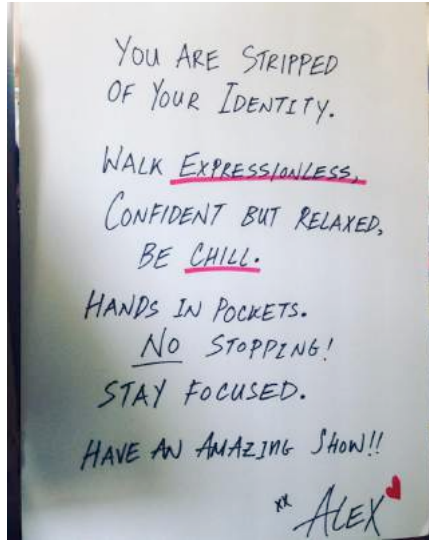 YOU ARE STRIPPED
OF YOUR IDENTITY.
WALK EXPRESSIONLESS,
CONFIDENT BUT RELAXED,
BE CHILL.
HANDS IN POCKETS.
NO STOPPING!
STAY FOCUSED.
HAVE AN AMAZING SHOW!!
xx ALEX